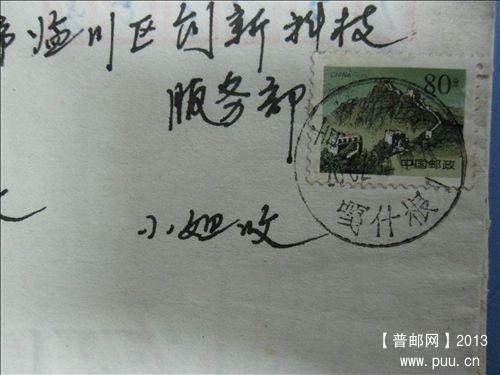 市临川区创新科技
服务部
小姐收
CHINA
80分
中国邮政
【普邮网】2013
www.puu.cn